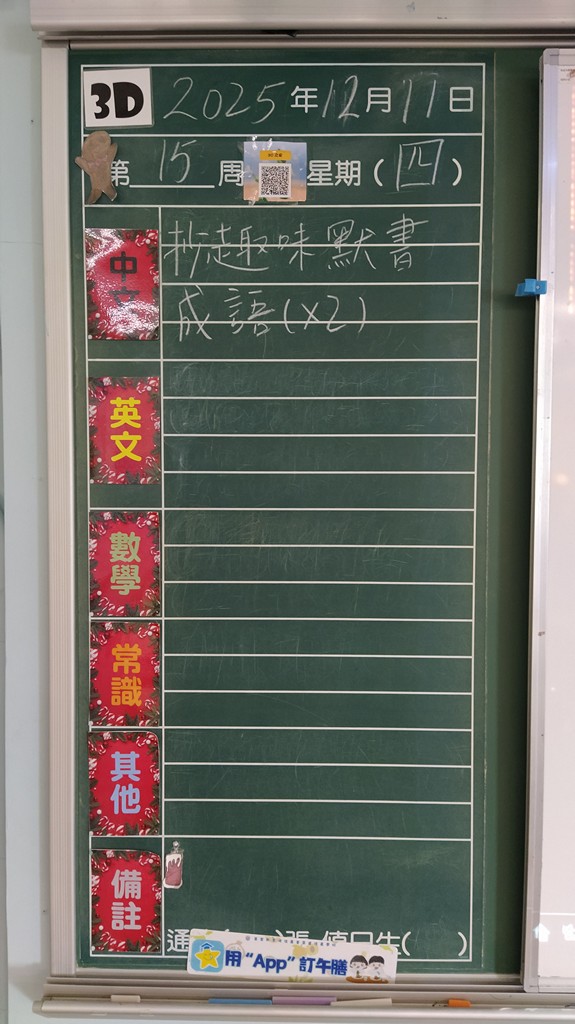 3D 2025年12月11日
第15周 星期(四)
中文 抄趣味默書
成語(x2)
英文
數學
常識
其他
備註
用“App”訂午膳